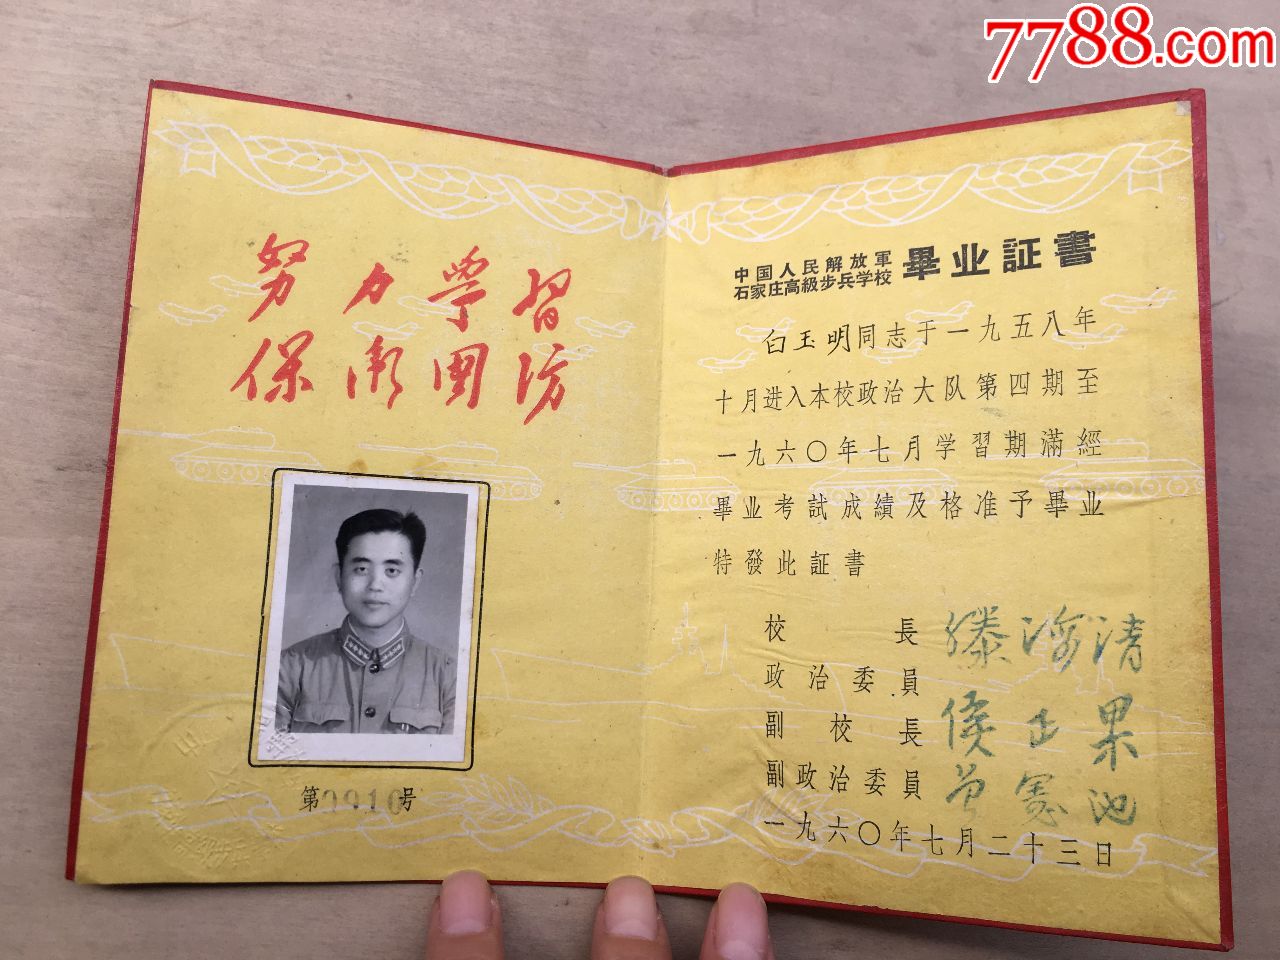 7788.com
努力學習
保衛國防
第0910号
中国人民解放軍
石家庄高級步兵学校
畢业証書
白玉明同志于一九五八年
十月进入本校政治大队第四期至
一九六〇年七月学習期滿經
畢业考試成績及格准予畢业
特發此証書
校長 滕海清
政治委員
副校長 侯正果
副政治委員 曾憲池
一九六〇年七月二十三日